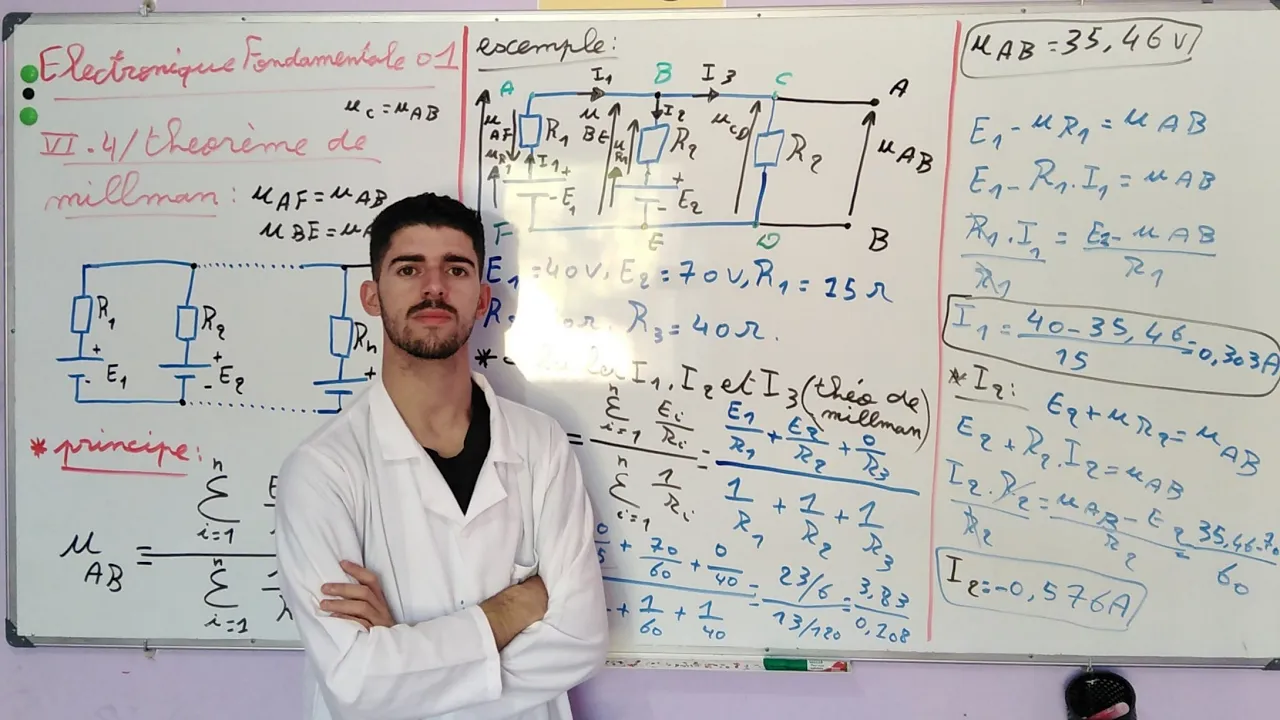 Electronique Fondamentale 01
uC = uAB
VI.4/ theorème de
millman:
uAF = uAB
uBE = u
R1
R2
Rn
+ + +
- E1
- E2
* principe:
uAB =
n
Σ
i=1
E
n
Σ
i=1
1
escemple:
A I1 B I3 C A
uAF R1 I1 + - E1
uBE I2 R2 + - E2
uCD R2 uAB
F E D B
E1 = 40V, E2 = 70V, R1 = 15Ω
R3 = 40Ω.
I1, I2 et I3 (théo de
millman)
= Σ Ei/Ri = E1/R1 + E2/R2 + 0/R3
n
i=1
Σ 1/Ri
n
i=1
1/R1 + 1/R2 + 1/R3
+ 70/60 + 0/40 = 23/6 = 3,83
+ 1/60 + 1/40 13/120 0,108
uAB = 35,46 V
E1 - uR1 = uAB
E1 - R1.I1 = uAB
R1.I1/R1 = E1 - uAB/R1
I1 = 40-35,46/15 = 0,303A
* I2:
E2 + uR2 = uAB
E2 + R2.I2 = uAB
I2.R2/R2 = uAB - E2/R2 = 35,46-70/60
I2 = -0,576A